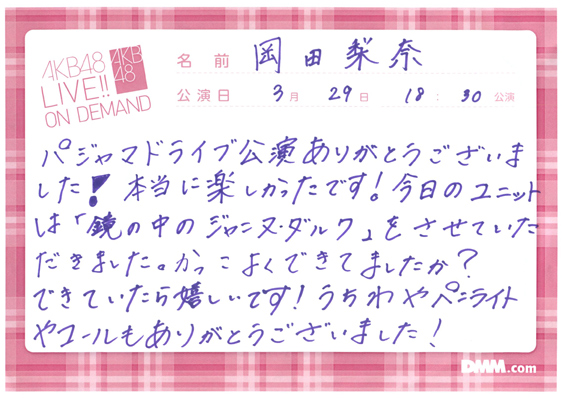 AKB48
LIVE!!
ON DEMAND
AKB
48
名前 岡田梨奈
公演日 3月 29日 18:30公演
パジャマドライブ公演ありがとうございま
した! 本当に楽しかったです!今日のユニット
は「鏡の中のジャンヌ・ダルク」をさせていた
だきました。かっこよくできてましたか?
できていたら嬉しいです!うちわやペンライト
やコールもありがとうございました!
DMM.com